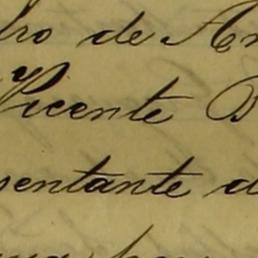 dro de Ar
Vicente B
sentante d